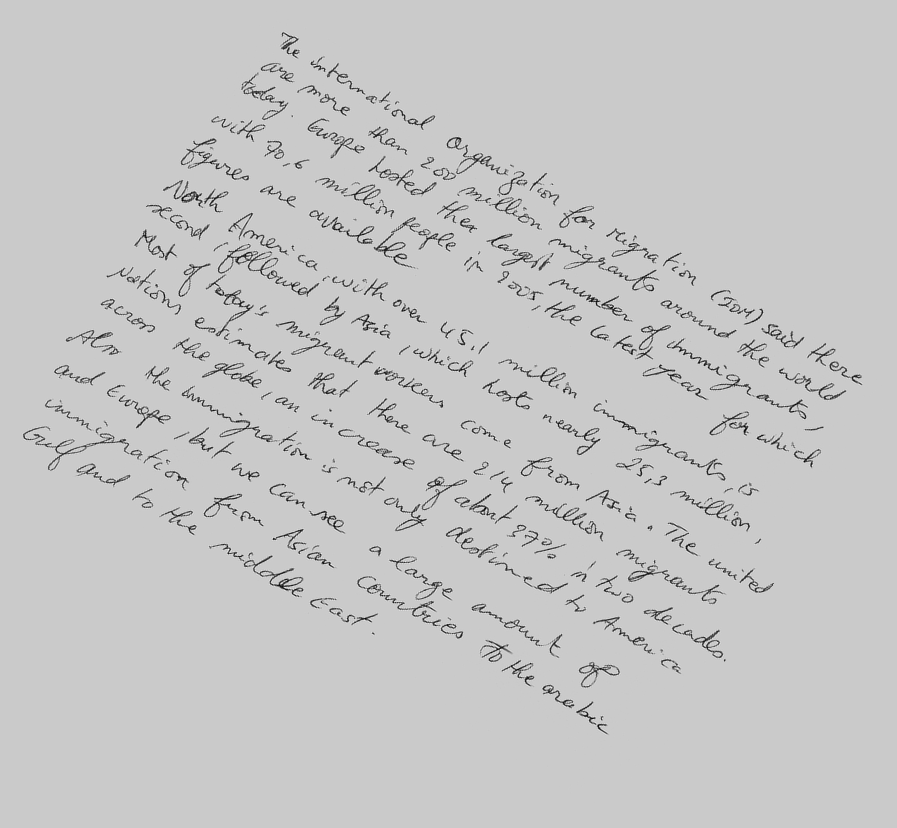 The international Organization for Migration (IOM) said there
are more than 200 million migrants around the world
today. Europe hosted the largest number of immigrants,
with 70,6 million people in 2005, the latest year for which
figures are available
North America, with over 45,1 million immigrants, is
second, followed by Asia, which hosts nearly 25,3 million,
Most of today's migrant workers come from Asia. The united
Nations estimates that there are 214 million migrants
across the globe, an increase of about 37% in two decades.
Also the immigration is not only destined to America
and Europe, but we can see a large amount of
immigration from Asian countries to the arabic
Gulf and to the middle East.